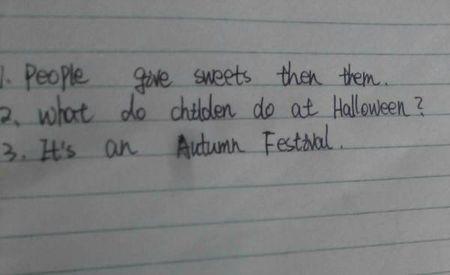 1. People give sweets then them.
2. What do childen do at Halloween?
3. It's an Autumn Festival.